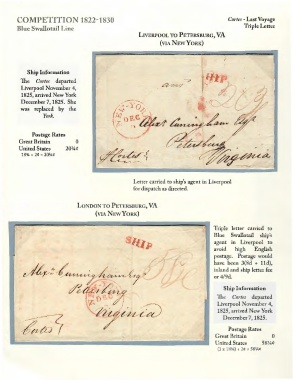 COMPETITION 1822-1830
Blue Swallowtail Line
Cortes - Last Voyage
Triple Letter
LIVERPOOL TO PETERSBURG, VA
(VIA NEW YORK)
Ship Information
The Cortes departed
Liverpool November 4,
1825, arrived New York
December 7, 1825. She
was replaced by the
York.
Postage Rates
Great Britain 0
United States 20¾¢
SHIP
NEW-YORK
DEC
Alexr Cuningham Esqr
Petersburg
Virginia
Letter carried to ship's agent in Liverpool
for dispatch as directed.
LONDON TO PETERSBURG, VA
(VIA NEW YORK)
SHIP
Alexr Cunningham Esqr
Petersburg
Virginia
Triple letter carried to
Blue Swallowtail ship's
agent in Liverpool to
avoid high English
postage. Postage would
have been
inland and ship letter fee
or 4/9d.
Ship Information
The Cortes departed
Liverpool November
4, 1825, arrived New York
December 7, 1825.
Postage Rates
Great Britain 0
United States